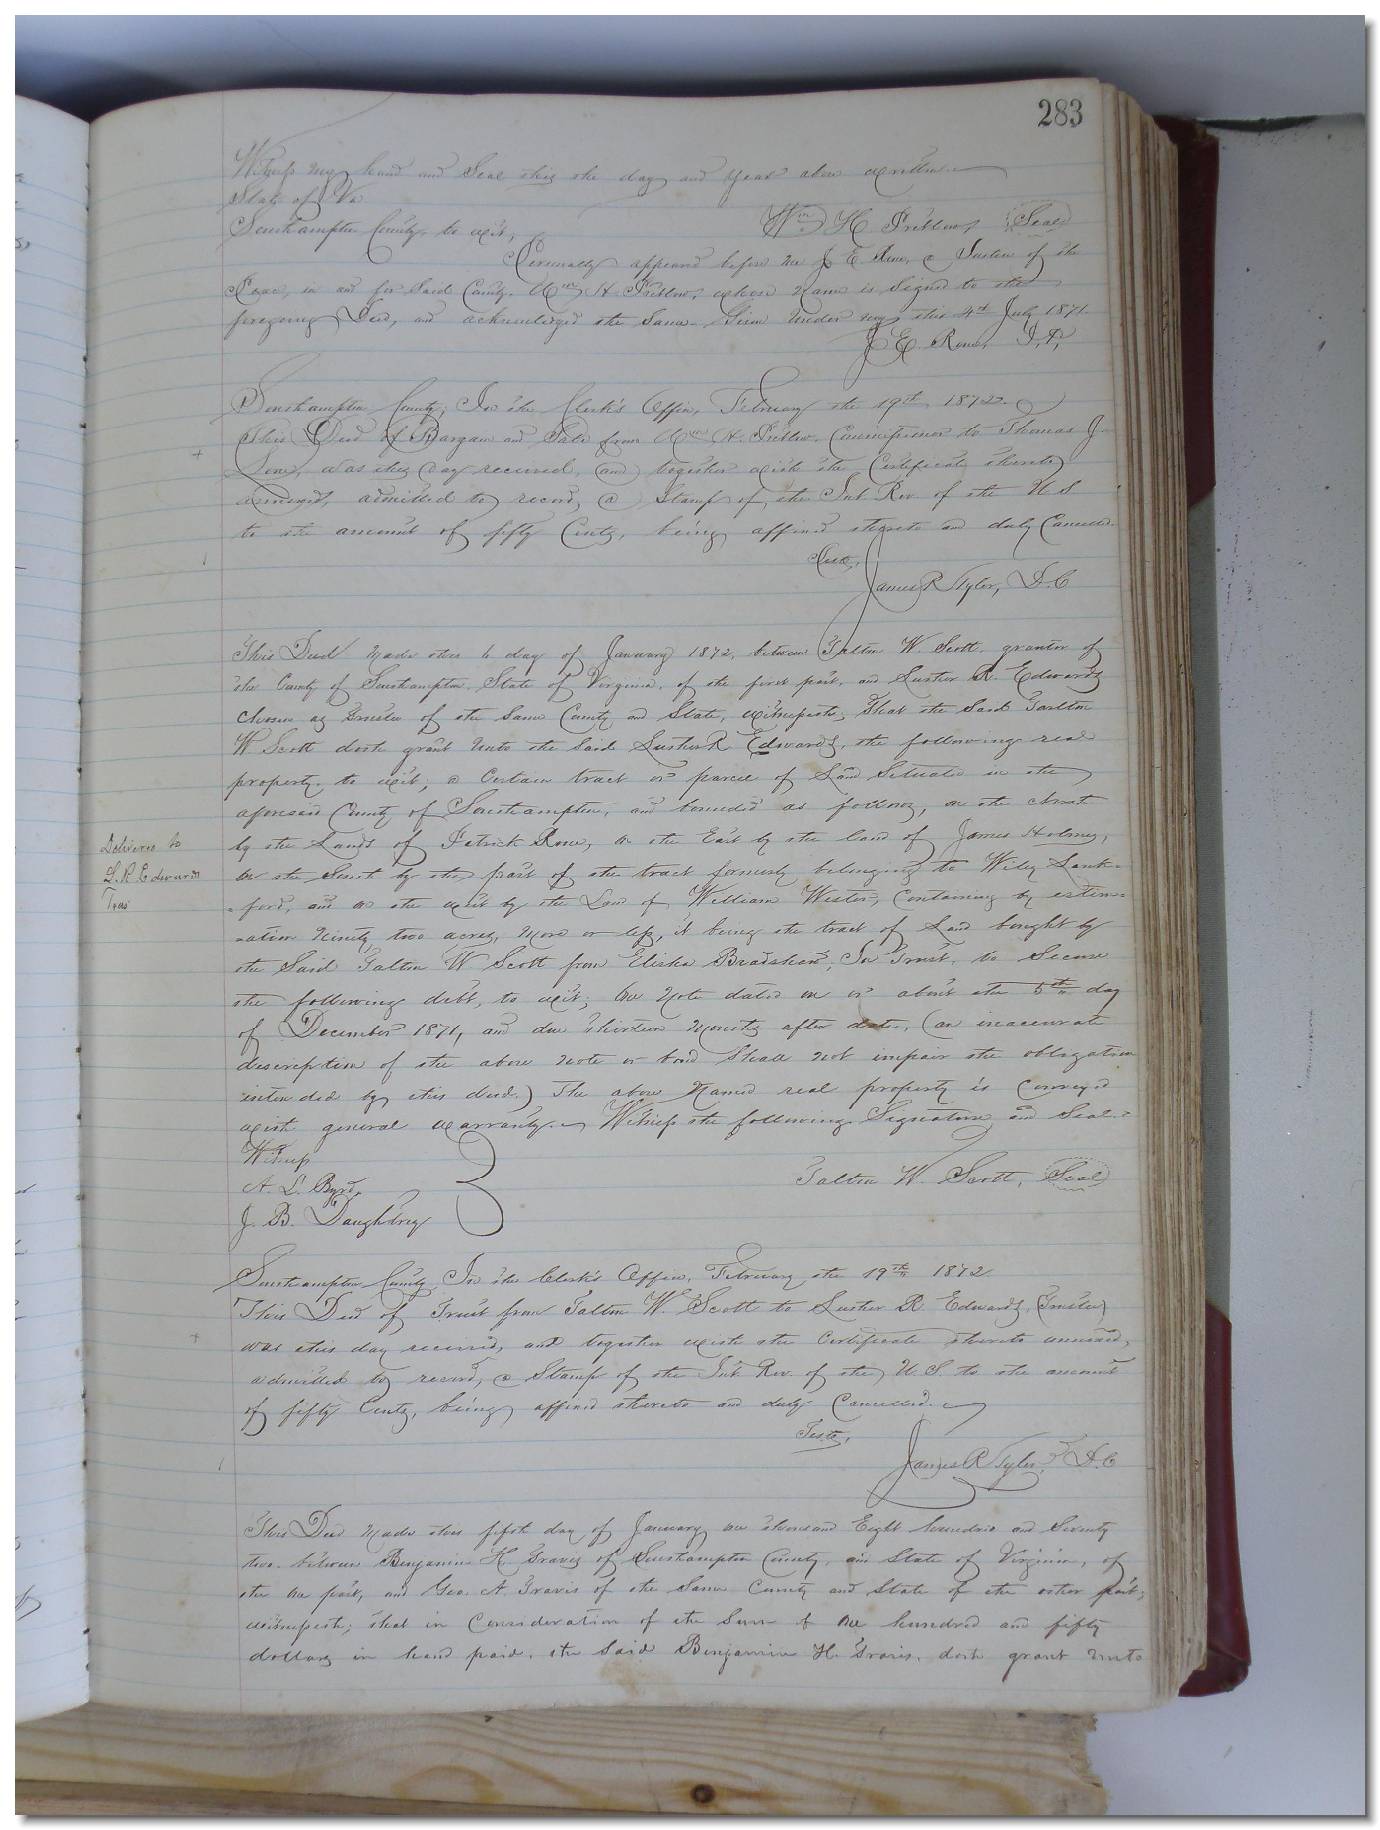 283
Witness my hand and Seal this the day and year above written.
State of Va
Wm H. Pretlow, Seal
Southampton County, to wit,
Personally appeared before me J E Rose, a Justice of the
Peace, in and for Said County. Wm H Pretlow, whose name is Signed to the
foregoing Deed, and acknowledged the Same. Given under my this 4th July 1871.
J. E. Rose, J.P.
Southampton County; In the Clerk's Office, February the 19th, 1872.
This Deed of Bargain and Sale from Wm H. Pretlow, Commissioner to Thomas J.
was this day received, and together with the Certificate thereto
annexed, admitted to record, a Stamp of the Int Rev of the U S
to the amount of fifty Cents, being affixed thereto and duly Cancelled.
Teste,
James R Tyler, D.C
This Deed made this 6 day of January 1872, between Talton W. Scott, grantor of
the County of Southampton, State of Virginia, of the first part, and Luther R. Edwards
chosen as Trustee of the Same County and State, witnesseth; That the Said Tarlton
W Scott doth grant unto the Said Luther R Edwards, the following real
property, to wit; a Certain tract or parcel of Land Situated in the
aforesaid County of Southampton, and bounded as follows, on the
by the Lands of Patrick Rose, on the East by the land of James Holmes,
Delivered to
L. R. Edwards
Trus
on the South by the part of the tract formerly belonging to Wiley Lank=
=ford, and on the west by the Land of William Wester, Containing by estim=
=ation Ninety two acres, more or less, it being the tract of Land bought by
the Said Talton W Scott from Elisha Bradshaw, In Trust, to Secure
the following debt, to wit; One Note dated on or about the 5th day
of December 1871, and due thirteen months after date, (an inaccurate
description of the above note or bond Shall not impair the obligation
intended by this deed.) The above Named real property is Conveyed
with general warranty. Witness the following Signature and Seal.
Witness
Talton W. Scott, Seal
A. L. Byrd,
J. B. Daughtrey
Southampton County, In the Clerk's Office, February the 19th 1872
This Deed of Trust from Talton W. Scott to Luther R. Edwards, (Trustee)
was this day received, and together with the Certificate thereto annexed,
admitted to record, a Stamp of the Int. Rev. of the U.S. to the amount
of fifty Cents, being affixed thereto and duly Cancelled.
Teste,
James R Tyler, D.C
This Deed made this fifth day of January one thousand Eight hundred and Seventy
two. between Benjamin H. Travis of Southampton County, and State of Virginia, of
the one part, and Geo. A Travis of the Same County and State of the other part;
witnesseth; that in Consideration of the Sum of One hundred and fifty
dollars in hand paid, the Said Benjamin H. Travis, doth grant unto